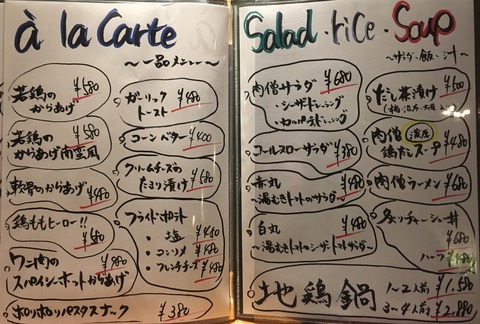 à la Carte
〜一品メニュー〜
若鶏の
からあげ ¥580
若鶏の
からあげ南蛮風 ¥580
軟骨のからあげ
¥480
鶏ももヒーロー!!
¥680
ワニ肉の ¥980
スパイシーホットからあげ
ポリポリパスタスナック ¥380
ガーリック
トースト ¥480
コーンバター ¥400
クリームチーズの
たまり漬け ¥680
フライドポテト
・塩 ¥450
・コンソメ ¥480
・フレンチチーズ ¥480
Salad・rice・Soup
〜サラダ・飯・汁〜
肉僧サラダ ¥680
・シーザードレッシング
・カルパチドレッシング
コールスローサラダ ¥380
赤丸 ¥480
〜湯むきトマトのサラダ〜
白丸 ¥480
〜湯むきトマトのシーザートマトサラダ〜
だし茶漬け ¥500
肉僧 濃厚
鶏だしスープ ¥480
肉僧ラーメン ¥680
炙りチャーシュー丼
¥680
ハーフ ¥480
地鶏鍋
1〜2人前 ¥1.580
3〜4人前 ¥2.880